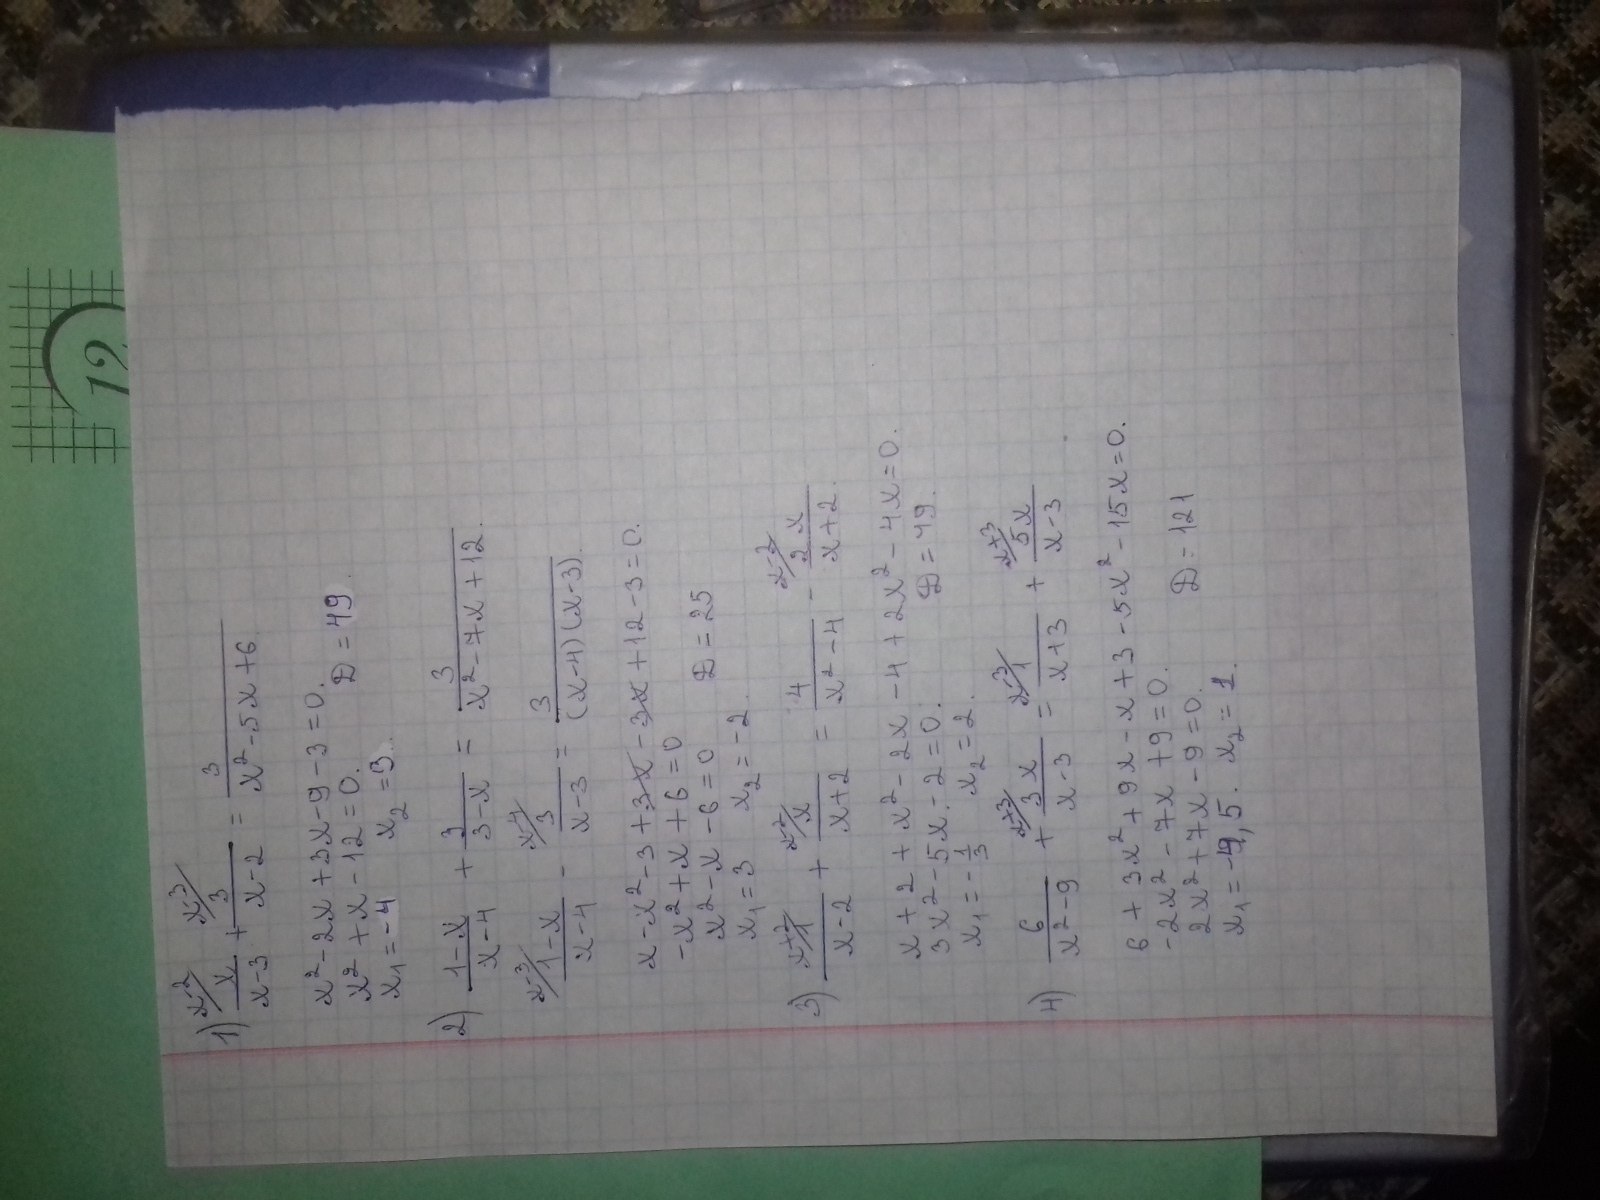 12
x-2 x-3
1) x/(x-3) + 3/(x-2) = 3/(x²-5x+6)
x²-2x+3x-9-3=0.
x²+x-12=0. D=49.
x₁=-4 x₂=3.
2) (1-x)/(x-4) + 3/(3-x) = 3/(x²-7x+12).
x-3 x-4
(1-x)/(x-4) - 3/(x-3) = 3/((x-4)(x-3)).
x-x²-3+3x-3x+12-3=0.
-x²+x+6=0
x²-x-6=0 D=25
x₁=3 x₂=-2
x+2 x-2 x-2
3) 1/(x-2) + x/(x+2) = 4/(x²-4) - 2x/(x+2).
x+2+x²-2x-4+2x²-4x=0.
3x²-5x-2=0. D=49.
x₁=-1/3 x₂=2.
x+3 x-3 x+3
4) 6/(x²-9) + 3x/(x-3) = 1/(x+3) + 5x/(x-3)
6+3x²+9x-x+3-5x²-15x=0.
-2x²-7x+9=0.
2x²+7x-9=0. D=121
x₁=-4,5. x₂=1.